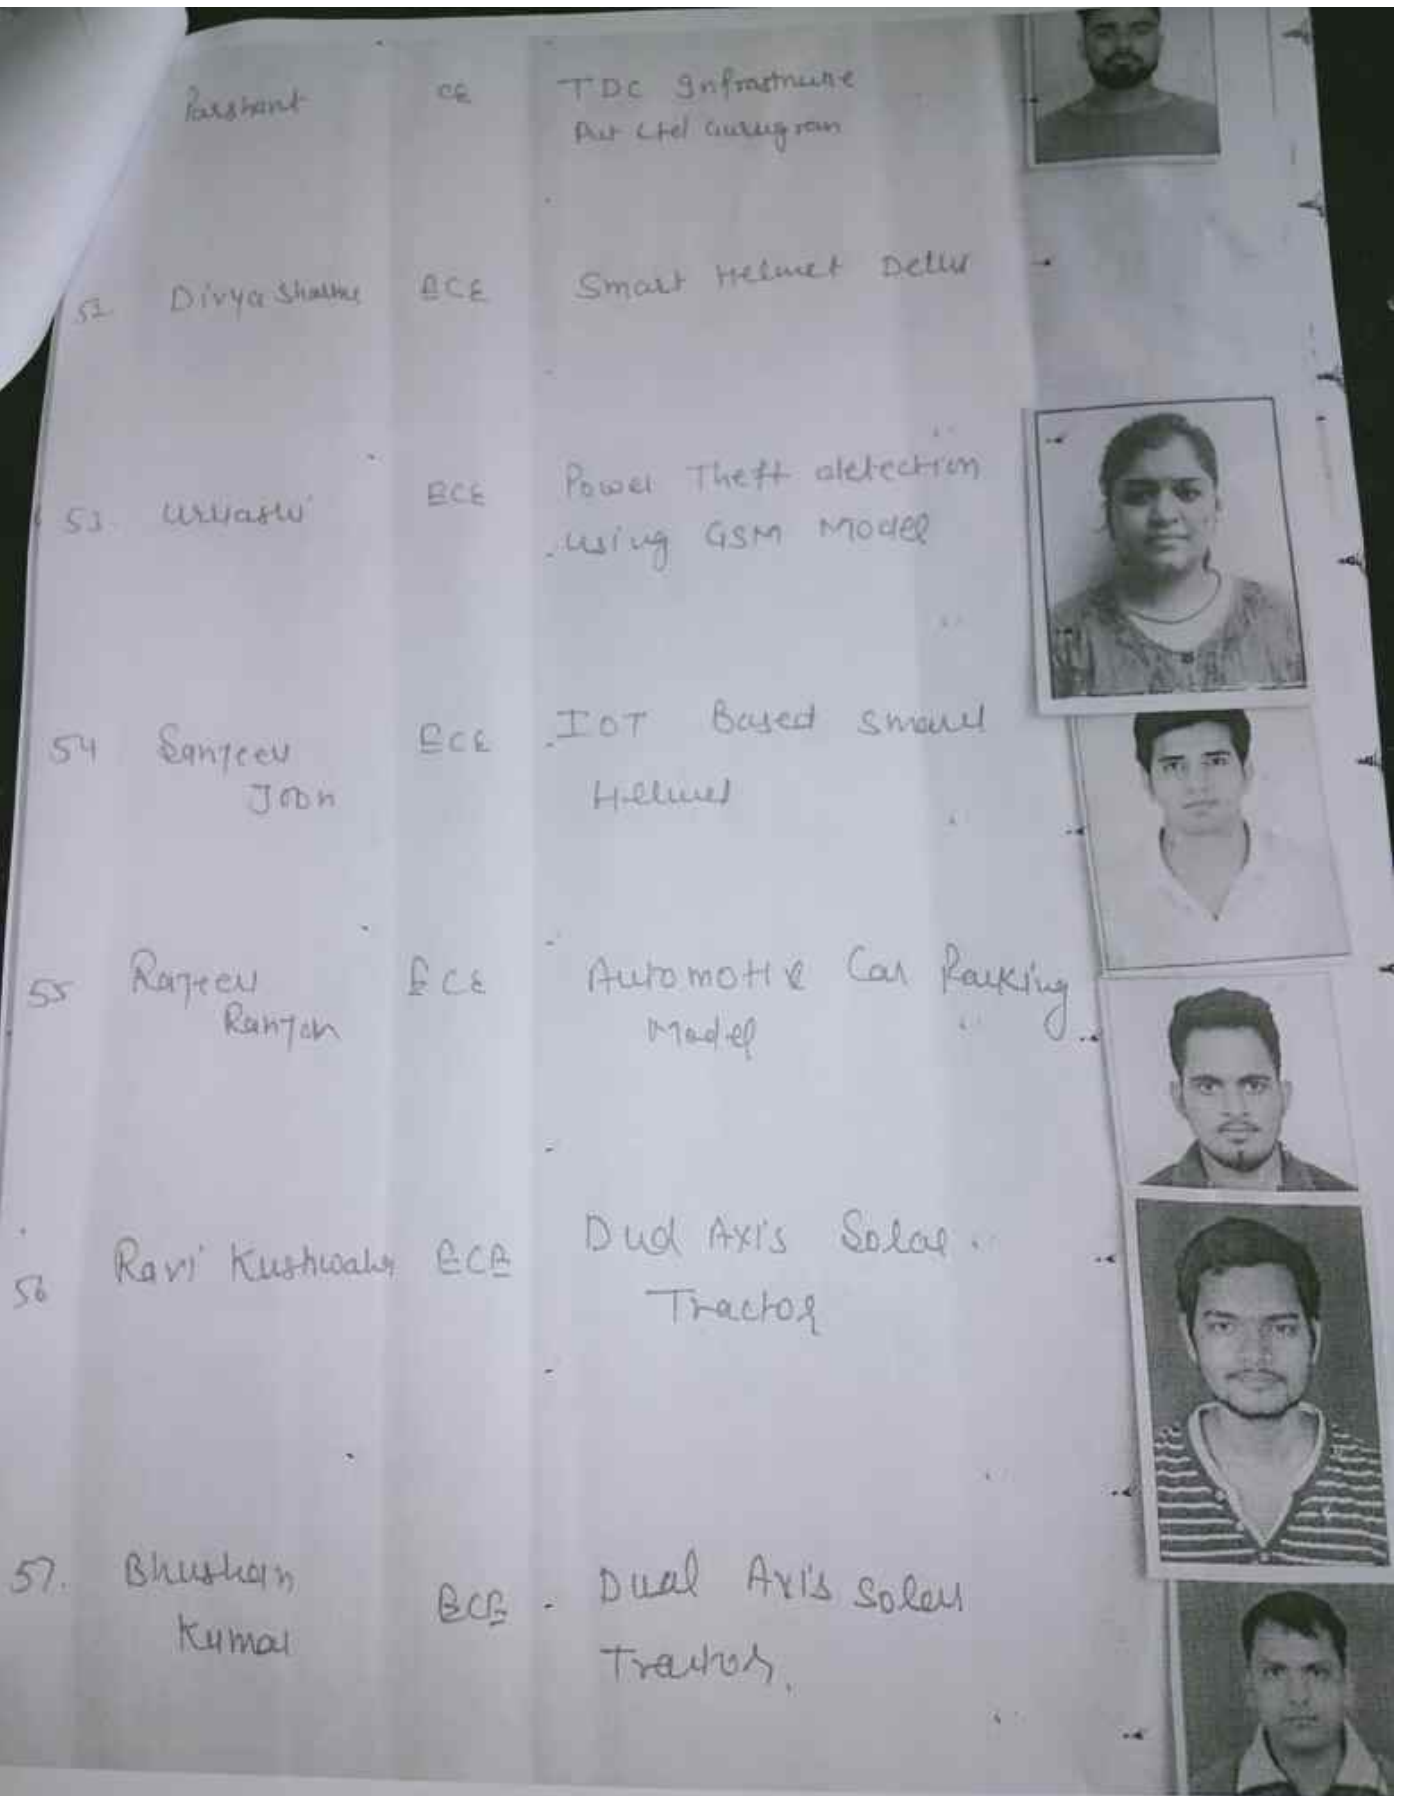 Parshant CE TDC Infrastructure
Pvt Ltd Gurugram
52. Divya Sharma ECE Smart Helmet Delhi
53. Urvashi ECE Power Theft detection
using GSM Model
54 Sanjeev ECE IOT Based Smart
Joon Helmet
55 Rajeev ECE Automotive Car Parking
Ranjan Model
56 Ravi Kushwaha ECE Dual Axis Solar
Tractor
57. Bhushan ECE Dual Axis Solar
Kumar Tractor.